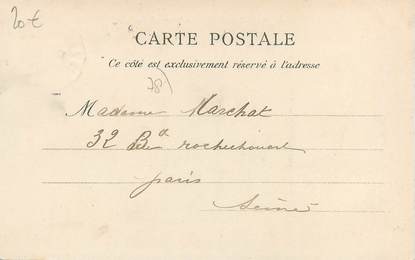 20€
CARTE POSTALE
Ce côté est exclusivement réservé à l'adresse
(78)
Madame Marchat
32 Bd rochechouart
paris
Seine